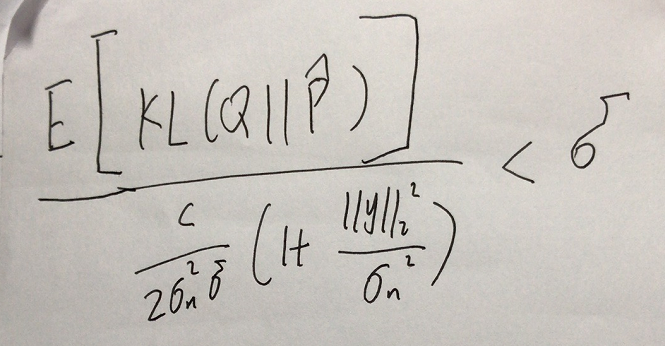 \frac{E\left[KL(Q||\hat{P})\right]}{\frac{c}{2\sigma_n^2\delta}\left(1+\frac{||y||_2^2}{\sigma_n^2}\right)} < \delta